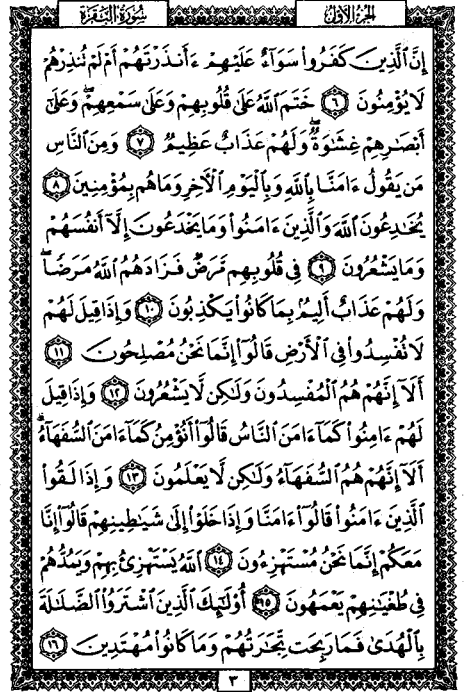 سُورَةُ البَقَرَةِ
الجُزءُ الأوّل
إِنَّ ٱلَّذِينَ كَفَرُوا۟ سَوَآءٌ عَلَيْهِمْ ءَأَنذَرْتَهُمْ أَمْ لَمْ تُنذِرْهُمْ
لَا يُؤْمِنُونَ ٦ خَتَمَ ٱللَّهُ عَلَىٰ قُلُوبِهِمْ وَعَلَىٰ سَمْعِهِمْۖ وَعَلَىٰٓ
أَبْصَـٰرِهِمْ غِشَـٰوَةٌۖ وَلَهُمْ عَذَابٌ عَظِيمٌ ٧ وَمِنَ ٱلنَّاسِ
مَن يَقُولُ ءَامَنَّا بِٱللَّهِ وَبِٱلْيَوْمِ ٱلْـَٔاخِرِ وَمَا هُم بِمُؤْمِنِينَ ٨
يُخَـٰدِعُونَ ٱللَّهَ وَٱلَّذِينَ ءَامَنُوا۟ وَمَا يَخْدَعُونَ إِلَّآ أَنفُسَهُمْ
وَمَا يَشْعُرُونَ ٩ فِى قُلُوبِهِم مَّرَضٌ فَزَادَهُمُ ٱللَّهُ مَرَضًاۖ
وَلَهُمْ عَذَابٌ أَلِيمٌۢ بِمَا كَانُوا۟ يَكْذِبُونَ ١٠ وَإِذَا قِيلَ لَهُمْ
لَا تُفْسِدُوا۟ فِى ٱلْأَرْضِ قَالُوٓا۟ إِنَّمَا نَحْنُ مُصْلِحُونَ ١١
أَلَآ إِنَّهُمْ هُمُ ٱلْمُفْسِدُونَ وَلَـٰكِن لَّا يَشْعُرُونَ ١٢ وَإِذَا قِيلَ
لَهُمْ ءَامِنُوا۟ كَمَآ ءَامَنَ ٱلنَّاسُ قَالُوٓا۟ أَنُؤْمِنُ كَمَآ ءَامَنَ ٱلسُّفَهَآءُۗ
أَلَآ إِنَّهُمْ هُمُ ٱلسُّفَهَآءُ وَلَـٰكِن لَّا يَعْلَمُونَ ١٣ وَإِذَا لَقُوا۟
ٱلَّذِينَ ءَامَنُوا۟ قَالُوٓا۟ ءَامَنَّا وَإِذَا خَلَوْا۟ إِلَىٰ شَيَـٰطِينِهِمْ قَالُوٓا۟ إِنَّا
مَعَكُمْ إِنَّمَا نَحْنُ مُسْتَهْزِءُونَ ١٤ ٱللَّهُ يَسْتَهْزِئُ بِهِمْ وَيَمُدُّهُمْ
فِى طُغْيَـٰنِهِمْ يَعْمَهُونَ ١٥ أُو۟لَـٰٓئِكَ ٱلَّذِينَ ٱشْتَرَوُا۟ ٱلضَّلَـٰلَةَ
بِٱلْهُدَىٰ فَمَا رَبِحَت تِّجَـٰرَتُهُمْ وَمَا كَانُوا۟ مُهْتَدِينَ ١٦
٣